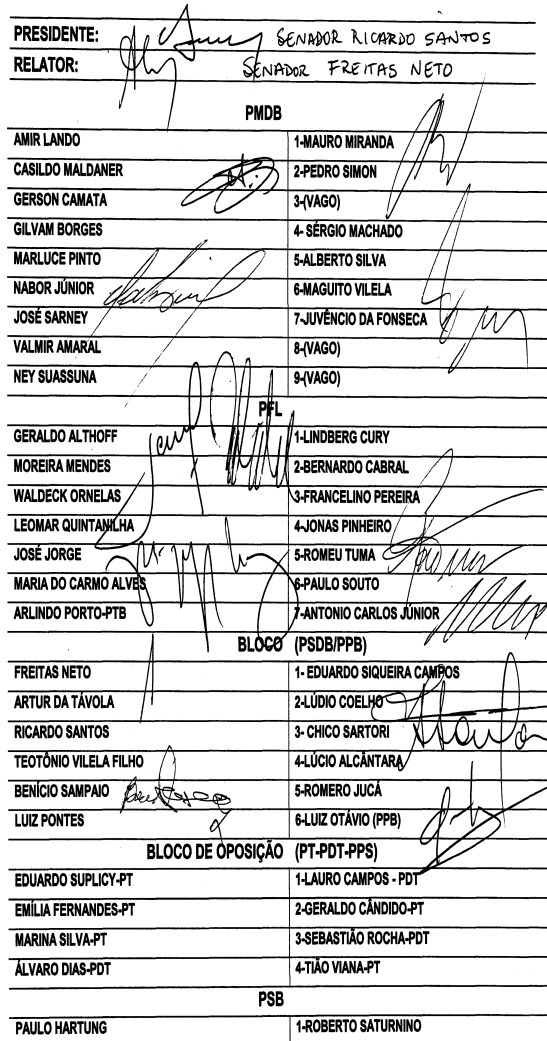 PRESIDENTE: SENADOR RICARDO SANTOS
RELATOR: SENADOR FREITAS NETO
PMDB
AMIR LANDO 1-MAURO MIRANDA
CASILDO MALDANER 2-PEDRO SIMON
GERSON CAMATA 3-(VAGO)
GILVAM BORGES 4- SÉRGIO MACHADO
MARLUCE PINTO 5-ALBERTO SILVA
NABOR JÚNIOR 6-MAGUITO VILELA
JOSÉ SARNEY 7-JUVÊNCIO DA FONSECA
VALMIR AMARAL 8-(VAGO)
NEY SUASSUNA 9-(VAGO)
PFL
GERALDO ALTHOFF 1-LINDBERG CURY
MOREIRA MENDES 2-BERNARDO CABRAL
WALDECK ORNELAS 3-FRANCELINO PEREIRA
LEOMAR QUINTANILHA 4-JONAS PINHEIRO
JOSÉ JORGE 5-ROMEU TUMA
MARIA DO CARMO ALVES 6-PAULO SOUTO
ARLINDO PORTO-PTB 7-ANTONIO CARLOS JÚNIOR
BLOCO (PSDB/PPB)
FREITAS NETO 1- EDUARDO SIQUEIRA CAMPOS
ARTUR DA TÁVOLA 2-LÚDIO COELHO
RICARDO SANTOS 3- CHICO SARTORI
TEOTÔNIO VILELA FILHO 4-LÚCIO ALCÂNTARA
BENÍCIO SAMPAIO 5-ROMERO JUCÁ
LUIZ PONTES 6-LUIZ OTÁVIO (PPB)
BLOCO DE OPOSIÇÃO (PT-PDT-PPS)
EDUARDO SUPLICY-PT 1-LAURO CAMPOS - PDT
EMÍLIA FERNANDES-PT 2-GERALDO CÂNDIDO-PT
MARINA SILVA-PT 3-SEBASTIÃO ROCHA-PDT
ÁLVARO DIAS-PDT 4-TIÃO VIANA-PT
PSB
PAULO HARTUNG 1-ROBERTO SATURNINO